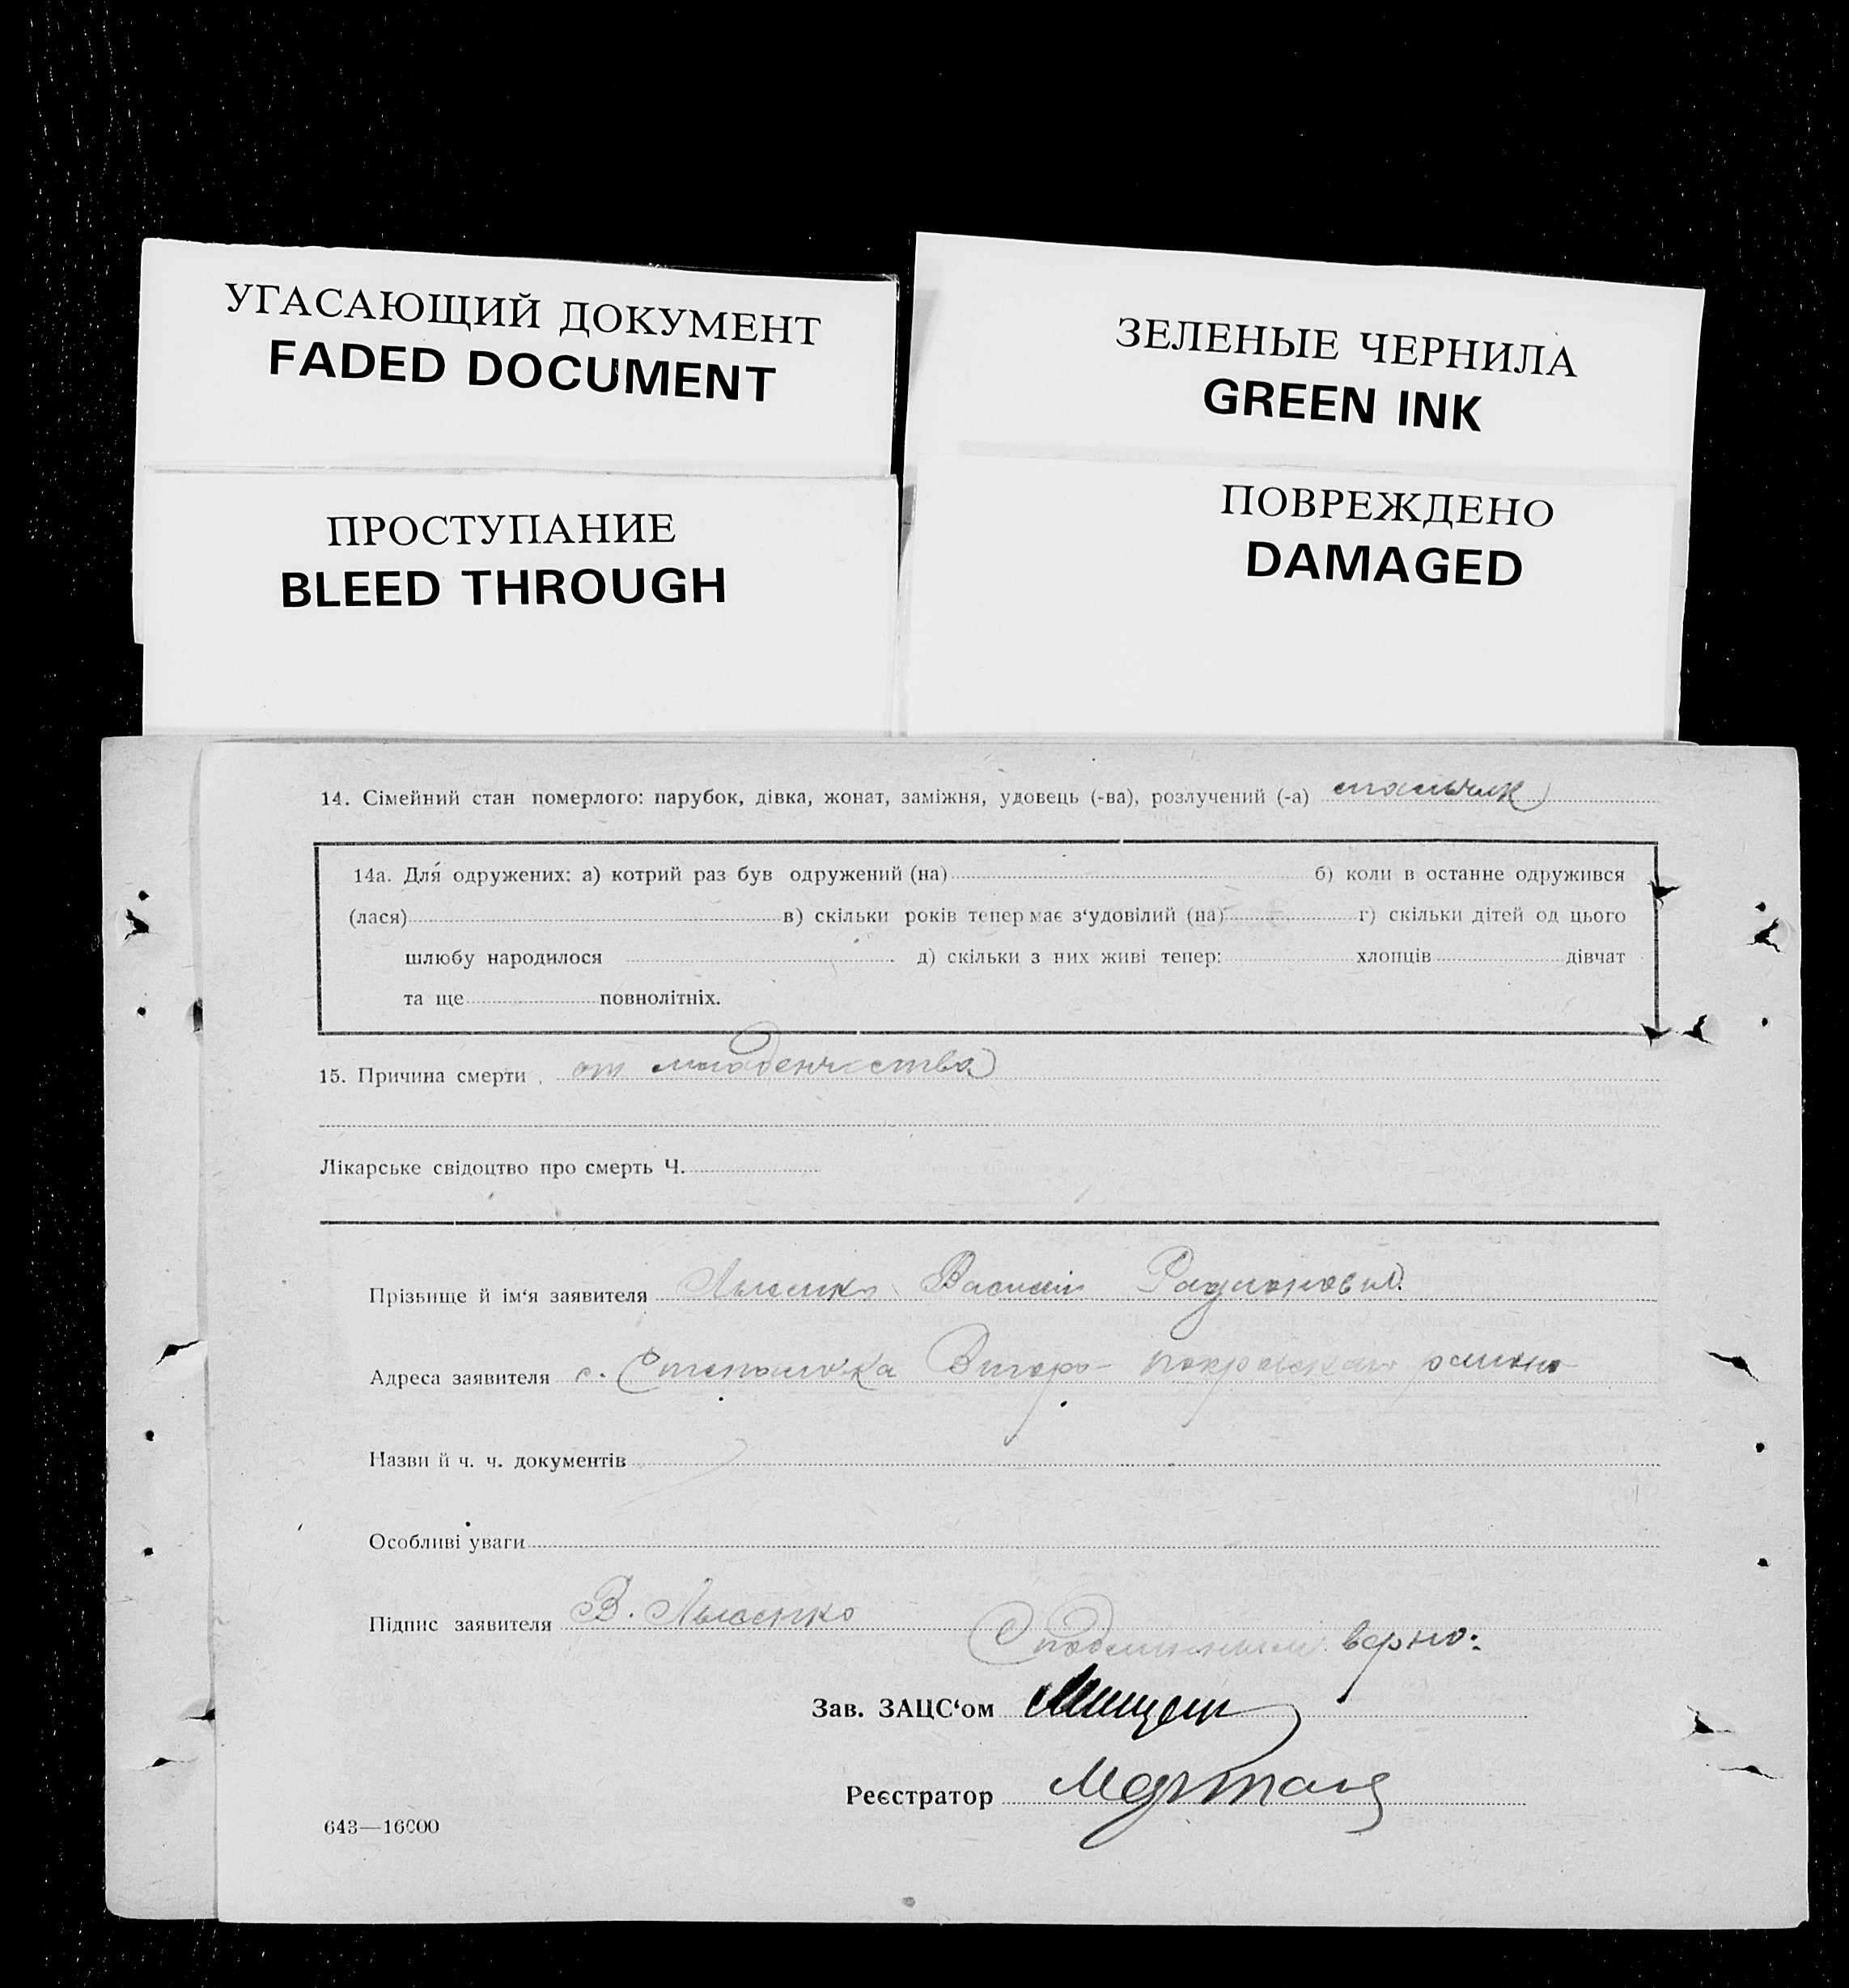 УГАСАЮЩИЙ ДОКУМЕНТ
FADED DOCUMENT
ЗЕЛЕНЫЕ ЧЕРНИЛА
GREEN INK
ПРОСТУПАНИЕ
BLEED THROUGH
ПОВРЕЖДЕНО
DAMAGED
14. Сімейний стан померлого: парубок, дівка, жонат, заміжня, удовець (-ва), розлучений (-а) мальчик
14а. Для одружених: а) котрий раз був одружений (на) б) коли в останнє одружився
(лася) в) скільки років тепер має з‘удовілий (на) г) скільки дітей од цього
шлюбу народилося д) скільки з них живі тепер: хлопців дівчат
та ще повнолітніх.
15. Причина смерти от младенчества
Лікарське свідоцтво про смерть Ч.
Прізвище й ім‘я заявителя Лысенко Василий Радионович
Адреса заявителя с. Степановка Второ-покровского района
Назви й ч. ч. документів
Особливі уваги
Підпис заявителя В. Лысенко
С подлинным верно:
Зав. ЗАЦС‘ом
Реєстратор
643—16000